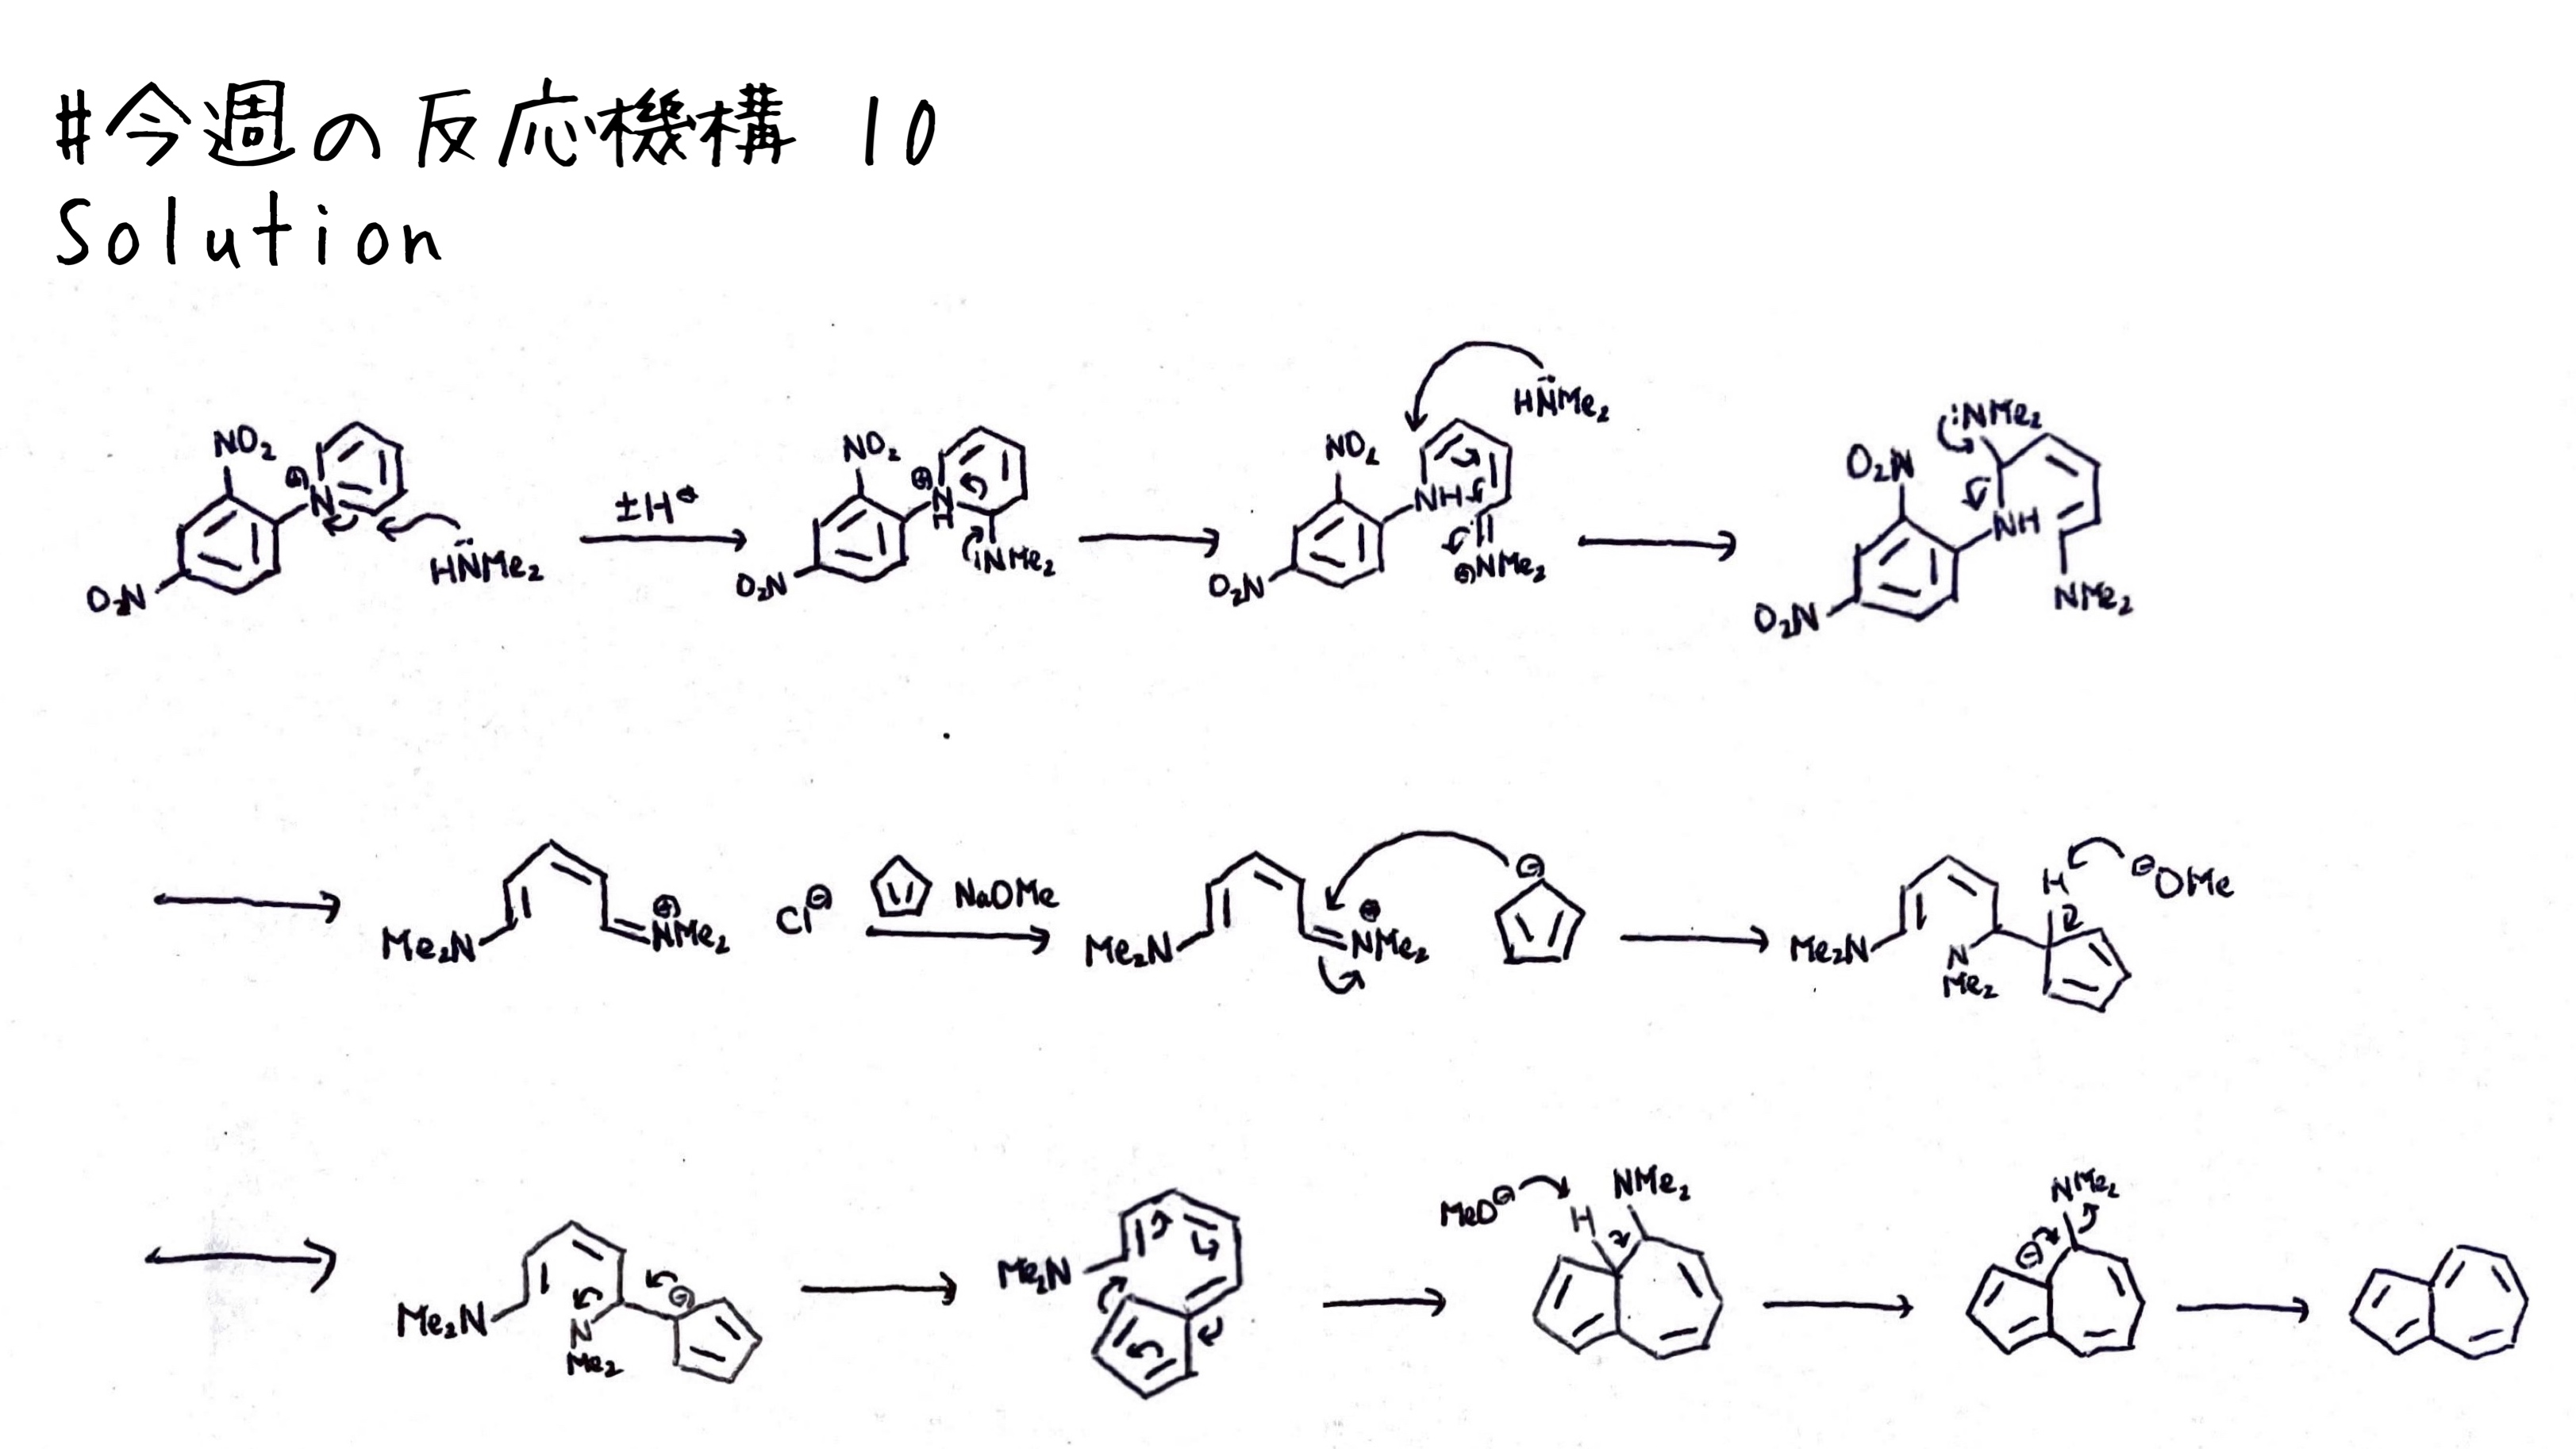 #今週の反応機構 10
Solution
NO2 ⊕ N O2N HN̈Me2
±H⊕
NO2 ⊕ N H O2N :NMe2
NO2 NH O2N ⊕NMe2 HN̈Me2
:NMe2 O2N NH O2N NMe2
Me2N ⊕ NMe2 Cl⊖
NaOMe
Me2N ⊕ NMe2 ⊖
Me2N N Me2 H ⊖OMe
Me2N N Me2 ⊖
Me2N
MeO⊖ H NMe2
⊖ NMe2